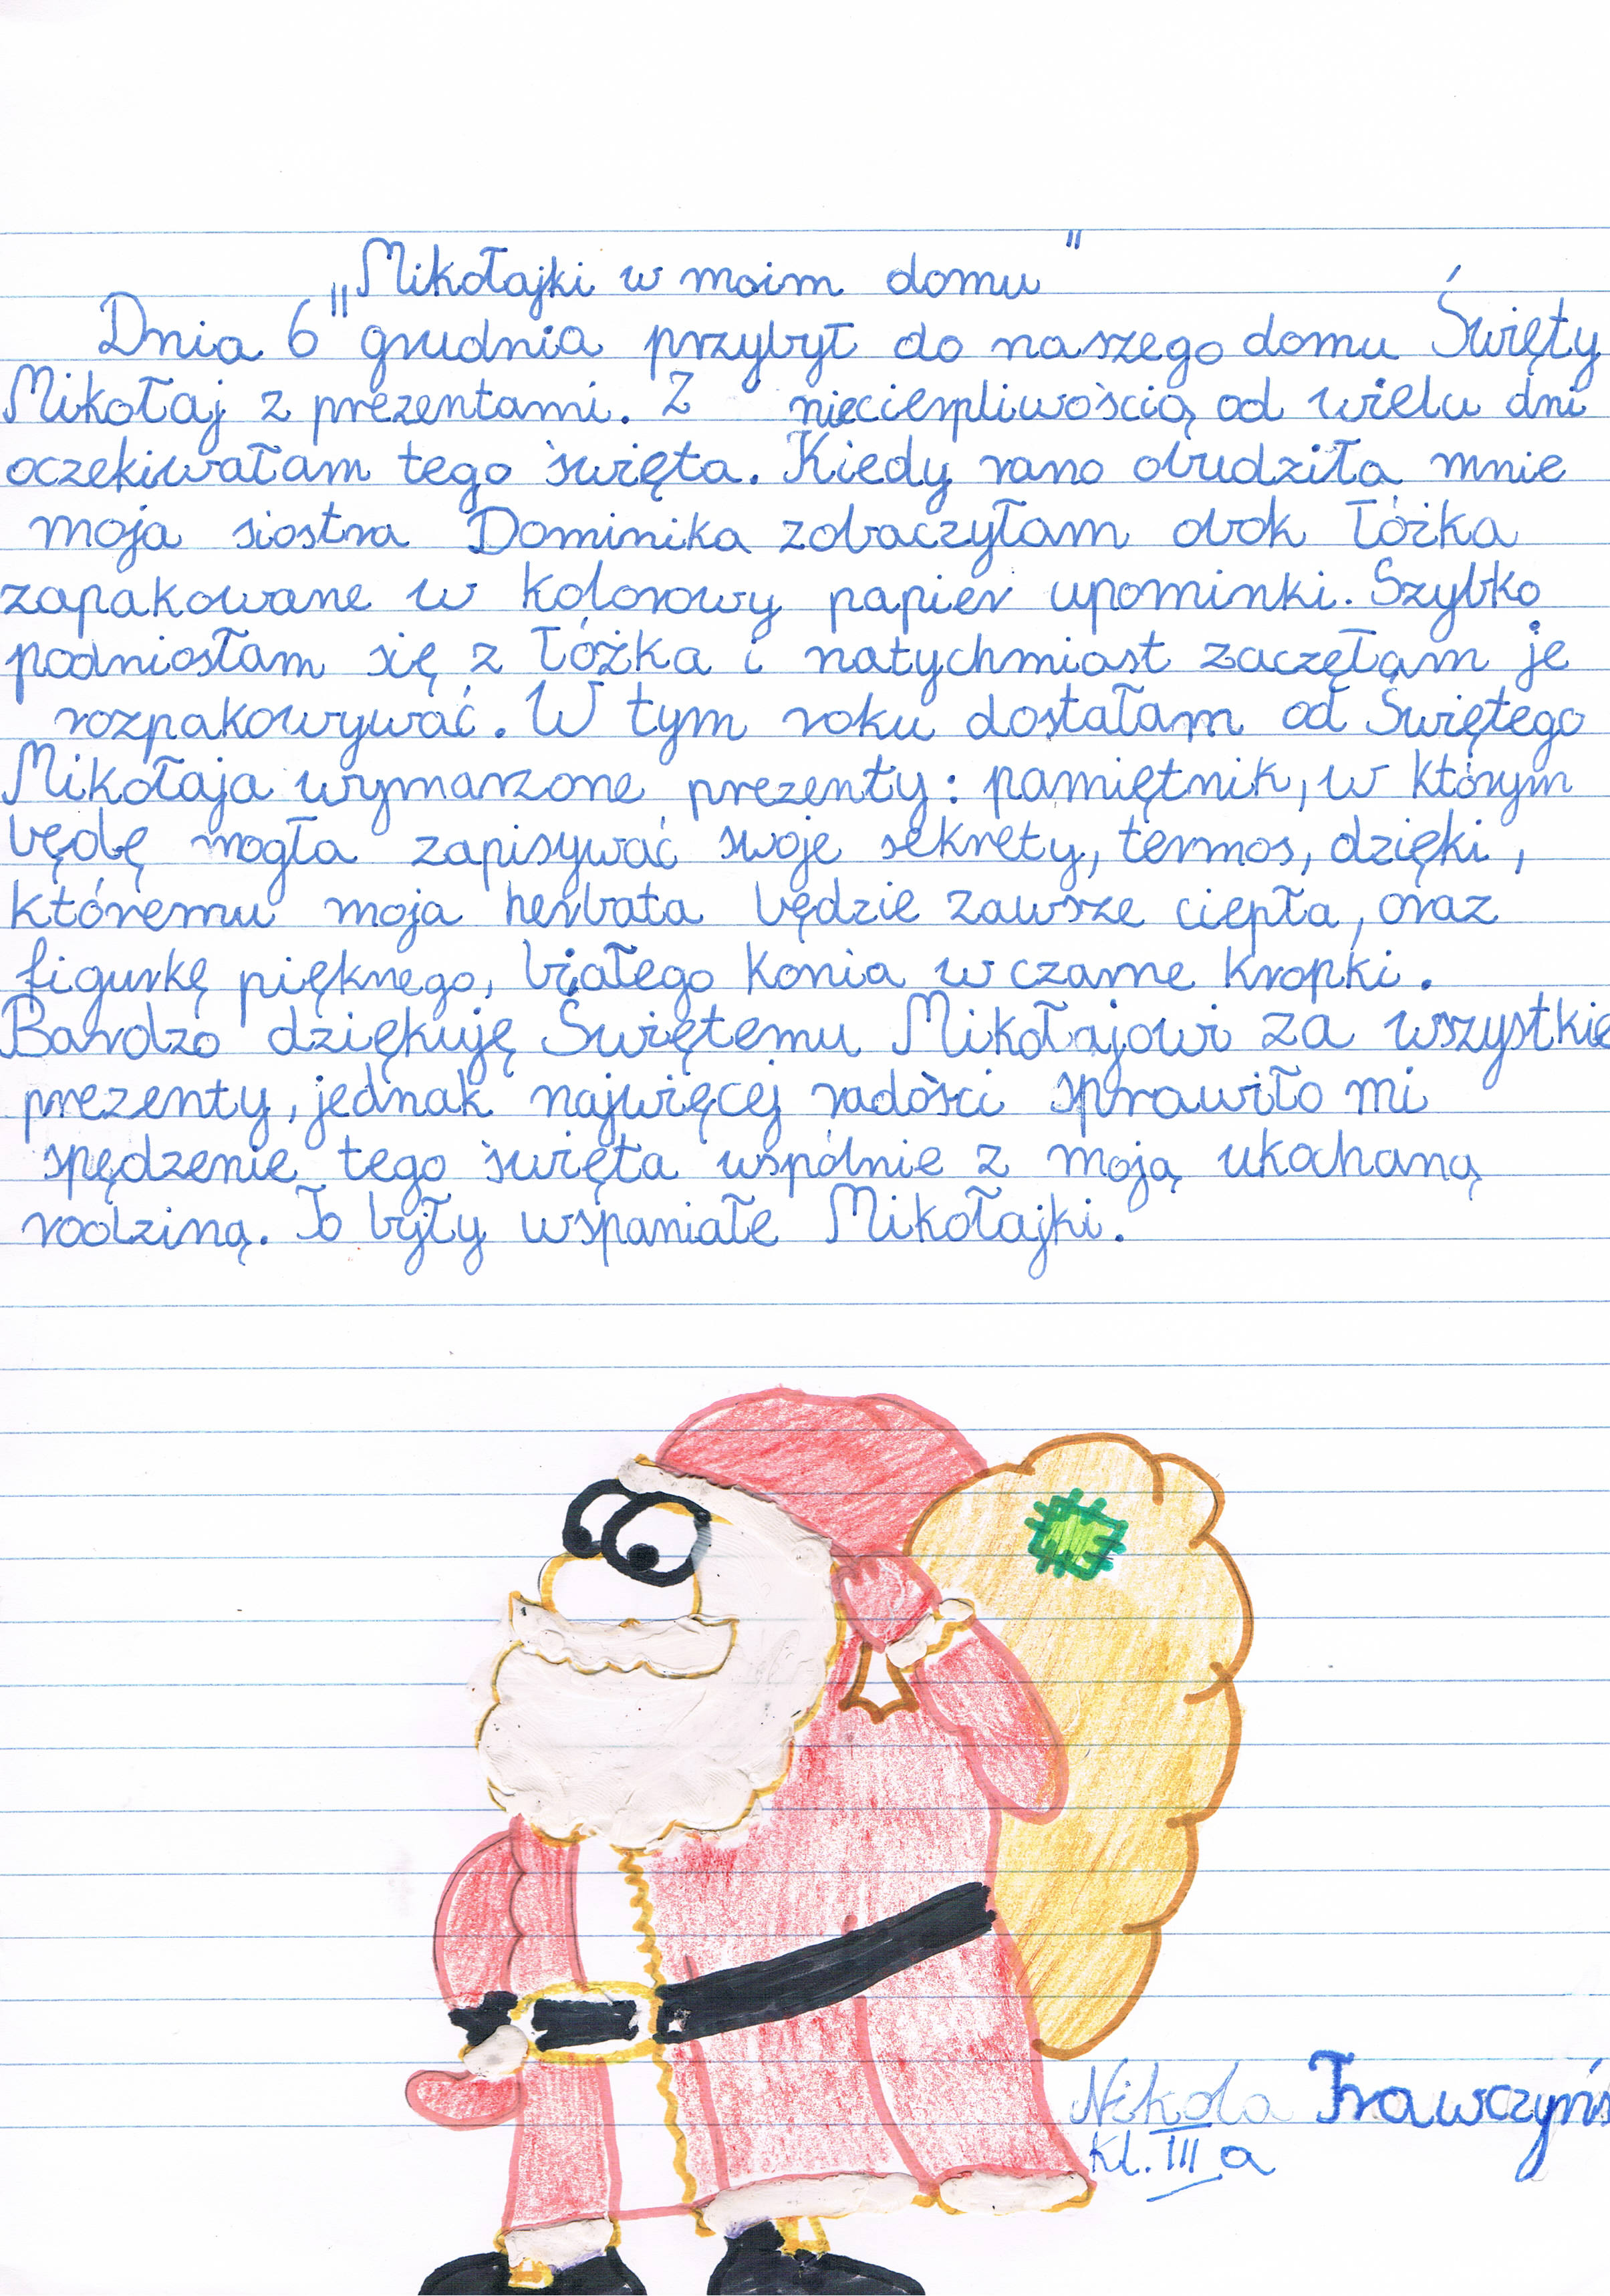 „Mikołajki w moim domu"
Dnia 6 grudnia przybył do naszego domu Święty
Mikołaj z prezentami. Z niecierpliwością od wielu dni
oczekiwałam tego święta. Kiedy rano obudziła mnie
moja siostra Dominika zobaczyłam obok łóżka
zapakowane w kolorowy papier upominki. Szybko
podniosłam się z łóżka i natychmiast zaczęłam je
rozpakowywać. W tym roku dostałam od Świętego
Mikołaja wymarzone prezenty: pamiętnik, w którym
będę mogła zapisywać swoje sekrety, termos, dzięki,
któremu moja herbata będzie zawsze ciepła, oraz
figurkę pięknego, białego konia w czarne kropki.
Bardzo dziękuję Świętemu Mikołajowi za wszystkie
prezenty, jednak najwięcej radości sprawiło mi
spędzenie tego święta wspólnie z moją ukochaną
rodziną. To były wspaniałe Mikołajki.
Nikola
kl. III a